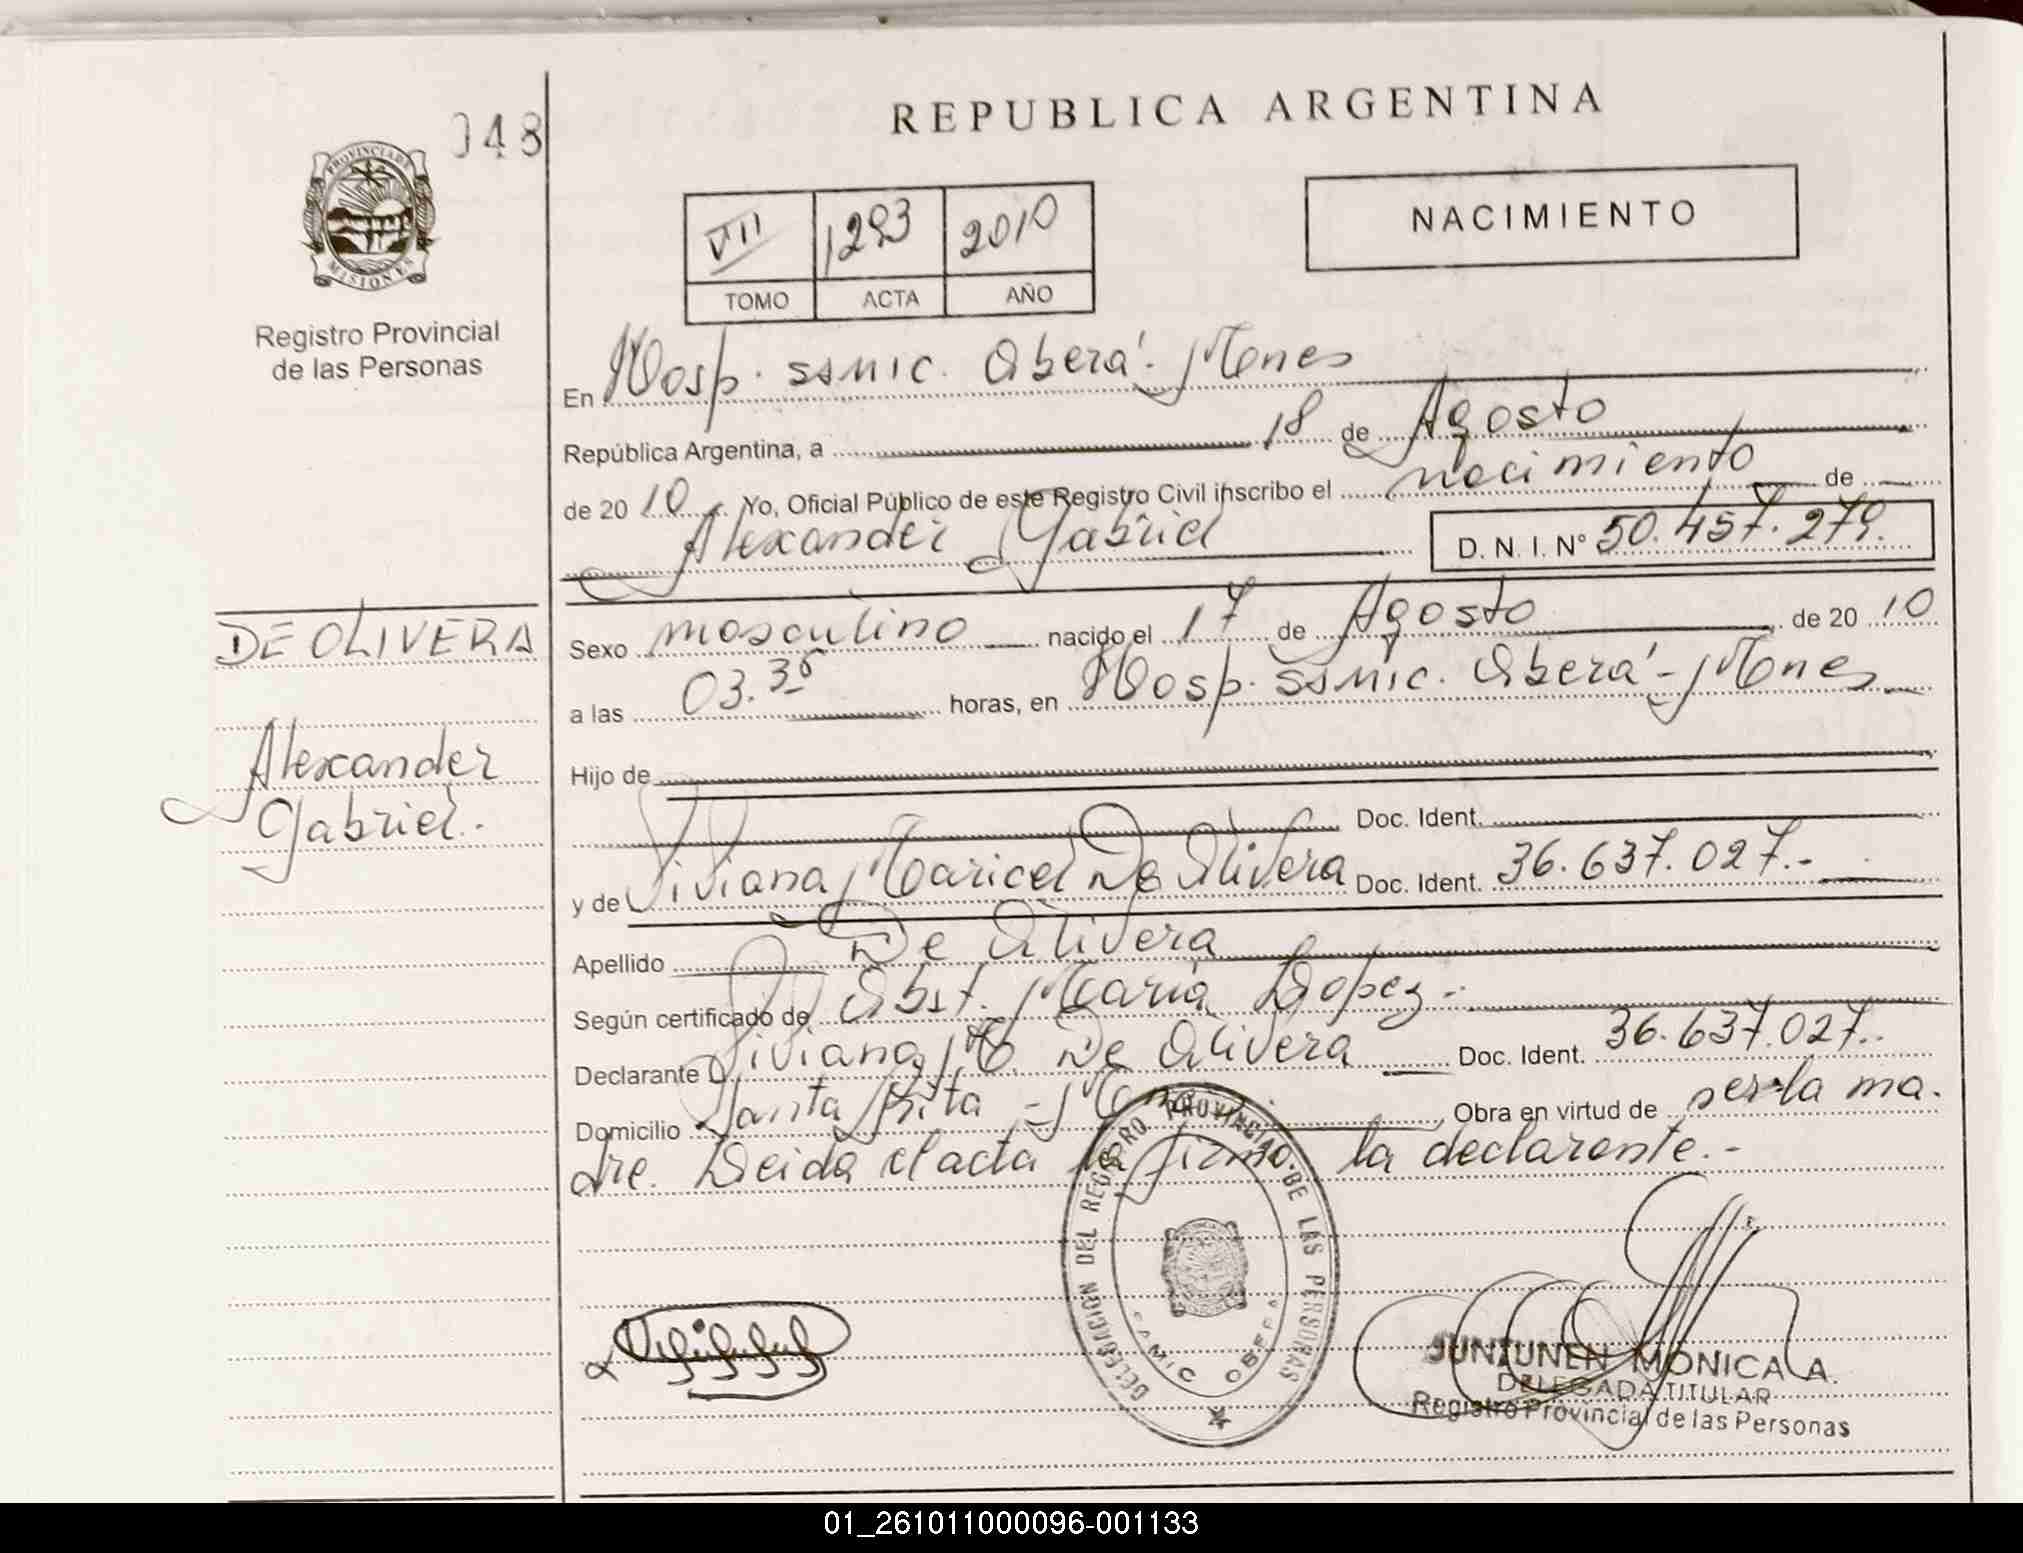 048
PROVINCIA DE
MISIONES
Registro Provincial
de las Personas
DE OLIVERA
Alexander
Gabriel.-
REPUBLICA ARGENTINA
NACIMIENTO
VII 1293 2010
TOMO ACTA AÑO
En Hosp. SSMIC. Oberá - Mnes
República Argentina, a 18 de Agosto
de 2010 Yo, Oficial Público de este Registro Civil inscribo el nacimiento de
Alexander Gabriel D. N. I. N° 50.457.279.
Sexo masculino nacido el 17 de Agosto de 2010
a las 03.35 horas, en Hosp. SSMIC. Oberá - Mnes
Hijo de
Doc. Ident.
y de Viviana Maricel De Olivera Doc. Ident. 36.637.027.-
Apellido De Olivera
Según certificado de Obst. María Lopez.-
Declarante Viviana M. De Olivera Doc. Ident. 36.637.027.-
Domicilio Santa Rita - Mnes. Obra en virtud de ser la ma.
dre. Leida el acta la firma la declarante.-
DELEGACION DEL REGISTRO PROVINCIAL DE LAS PERSONAS
SAMIC OBERA
JUNZUNEN MONICA A.
DELEGADA TITULAR
Registro Provincial de las Personas
01_261011000096-001133